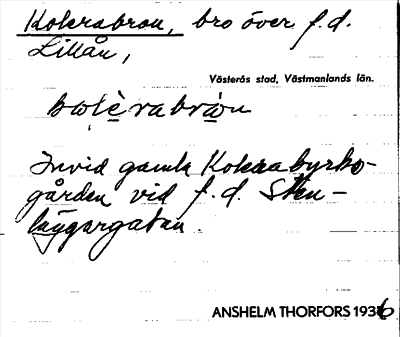 Kolerabron, bro över f.d.
Lillån,
Västerås stad, Västmanlands län.
kolèrabrón
Invid gamla Kolerabyrko-
gården vid f.d. Sten-
läggargatan.
ANSHELM THORFORS 1936